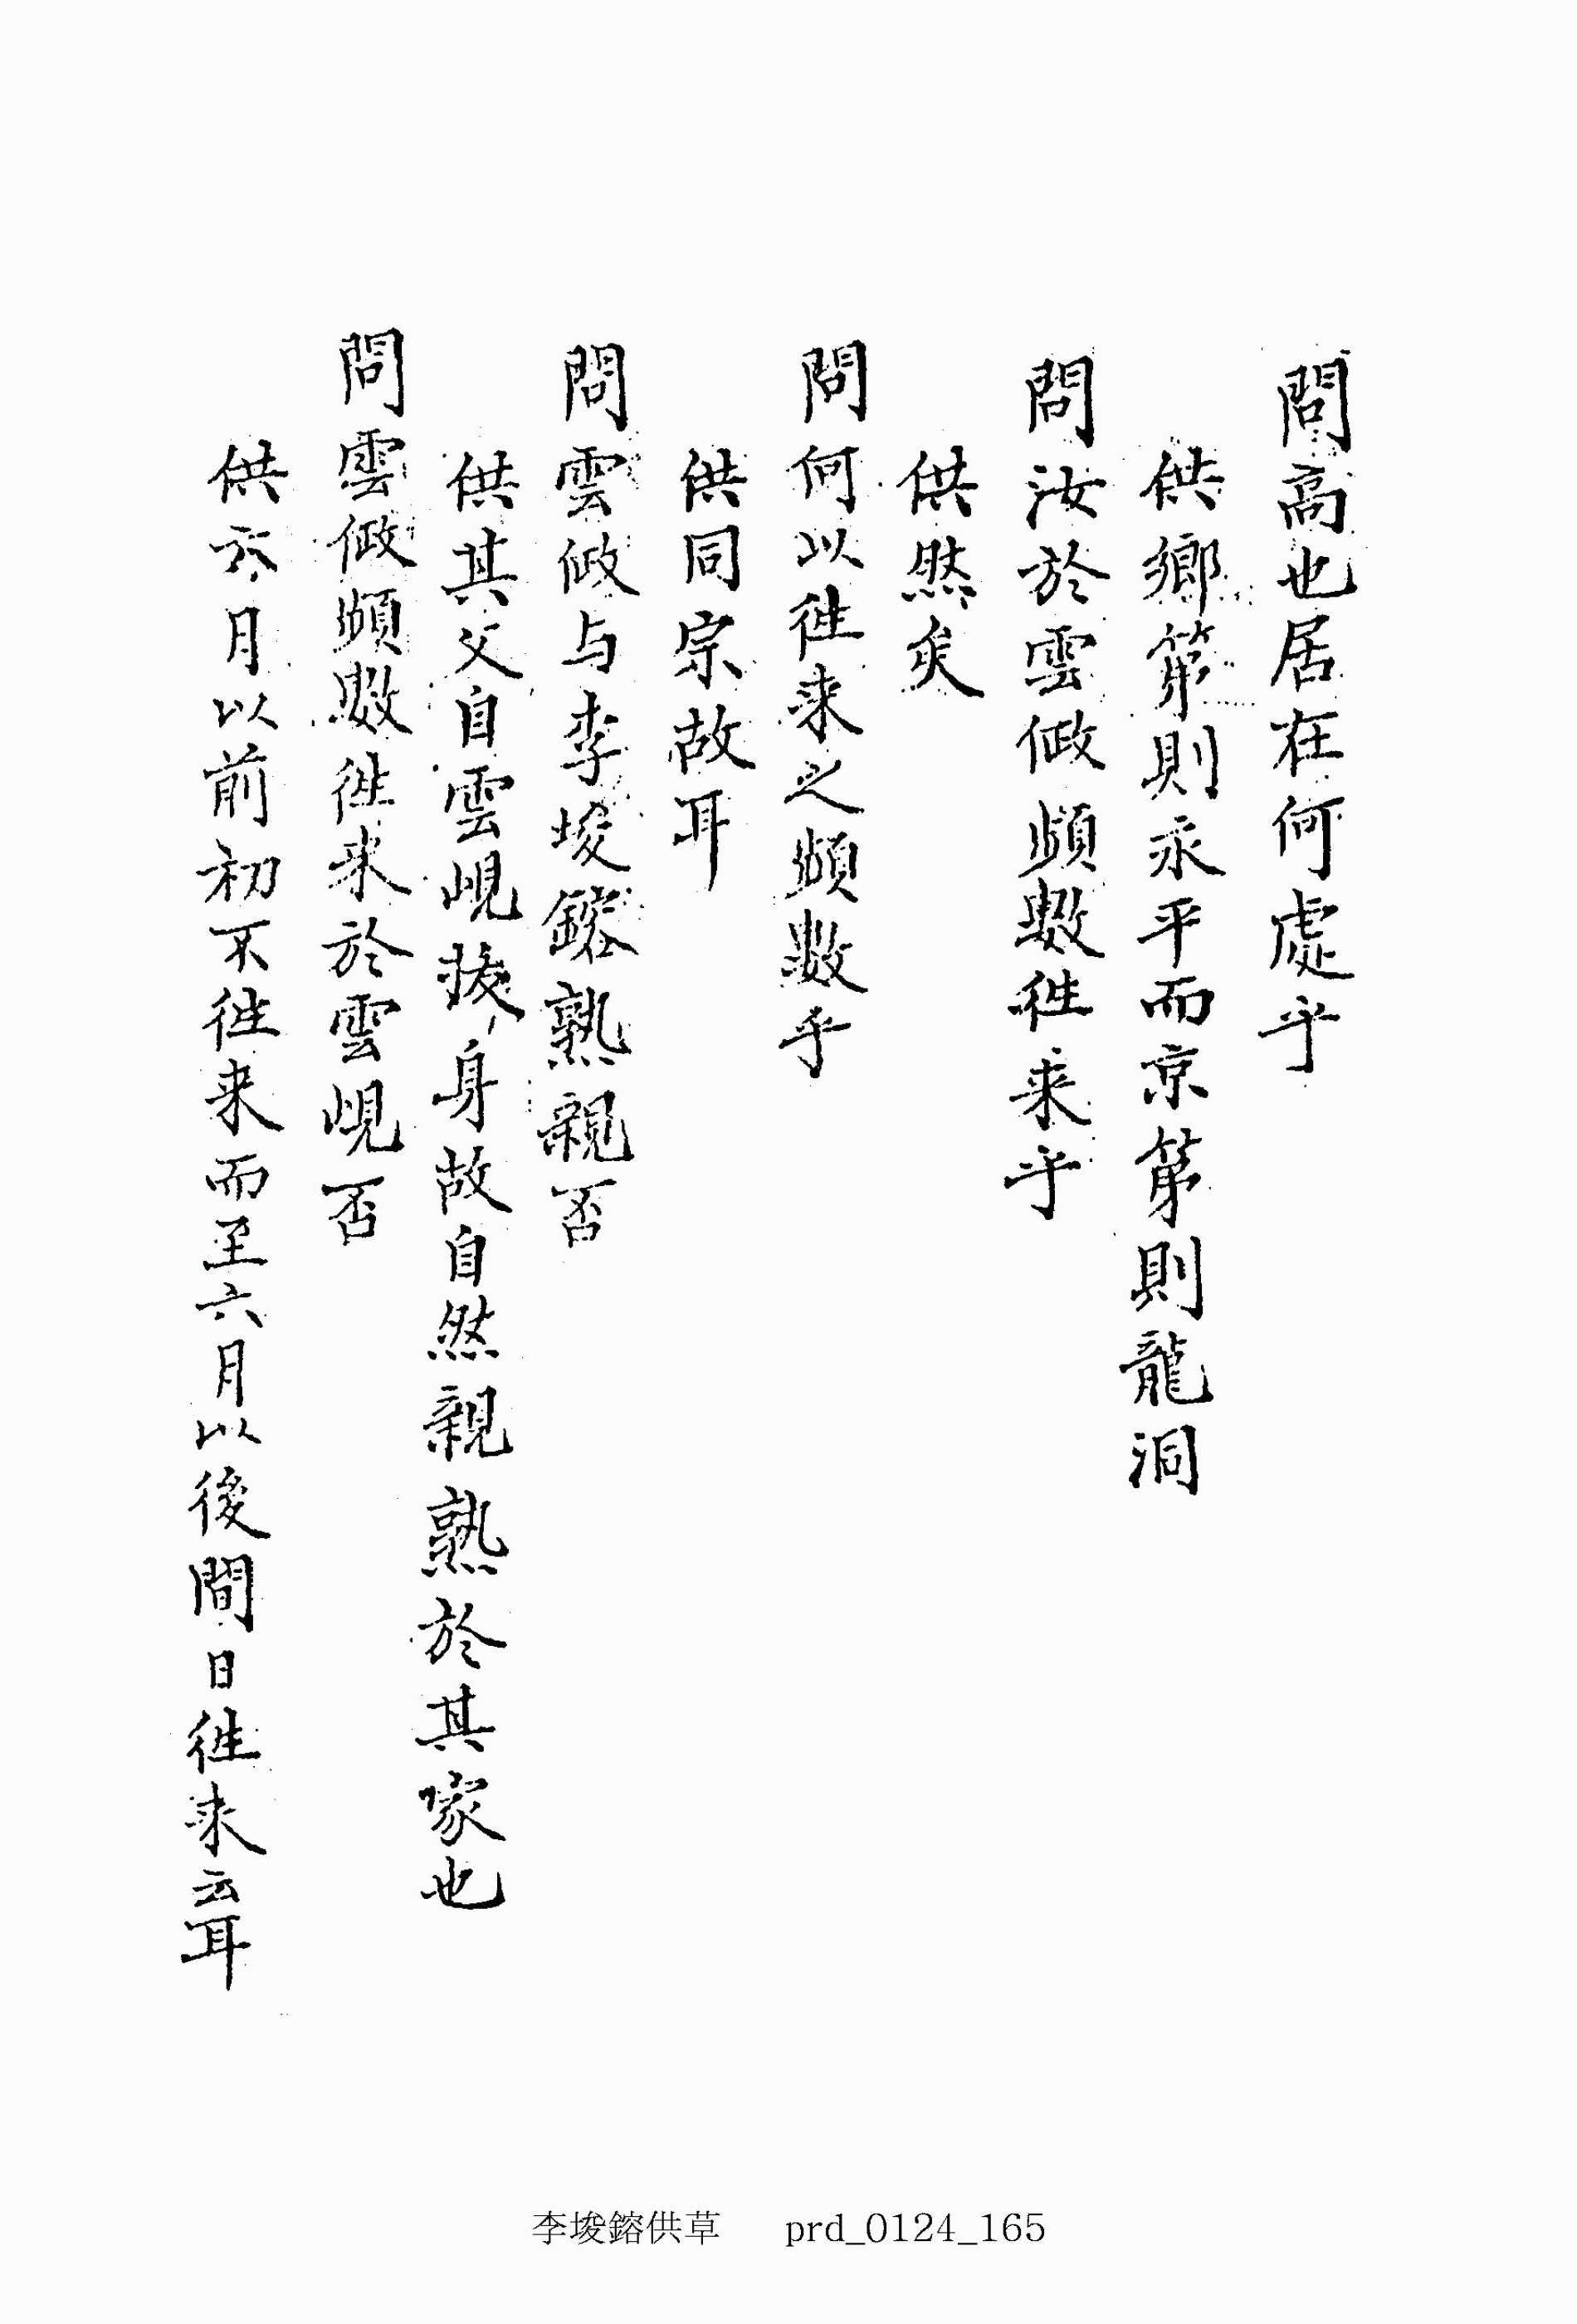 問高也居在何處乎
供鄕第則永平而京第則龍洞
問汝於雲倣頻數徃来乎
供然矣
問何以徃来之頻數乎
供同宗故耳
問雲倣与李埈鎔熟親否
供其父自雲峴拔身故自然親熟於其家也
問雲倣頻數徃来於雲峴否
供六月以前初不徃来而至六月以後間日徃来云耳
李埈鎔供草 prd_0124_165